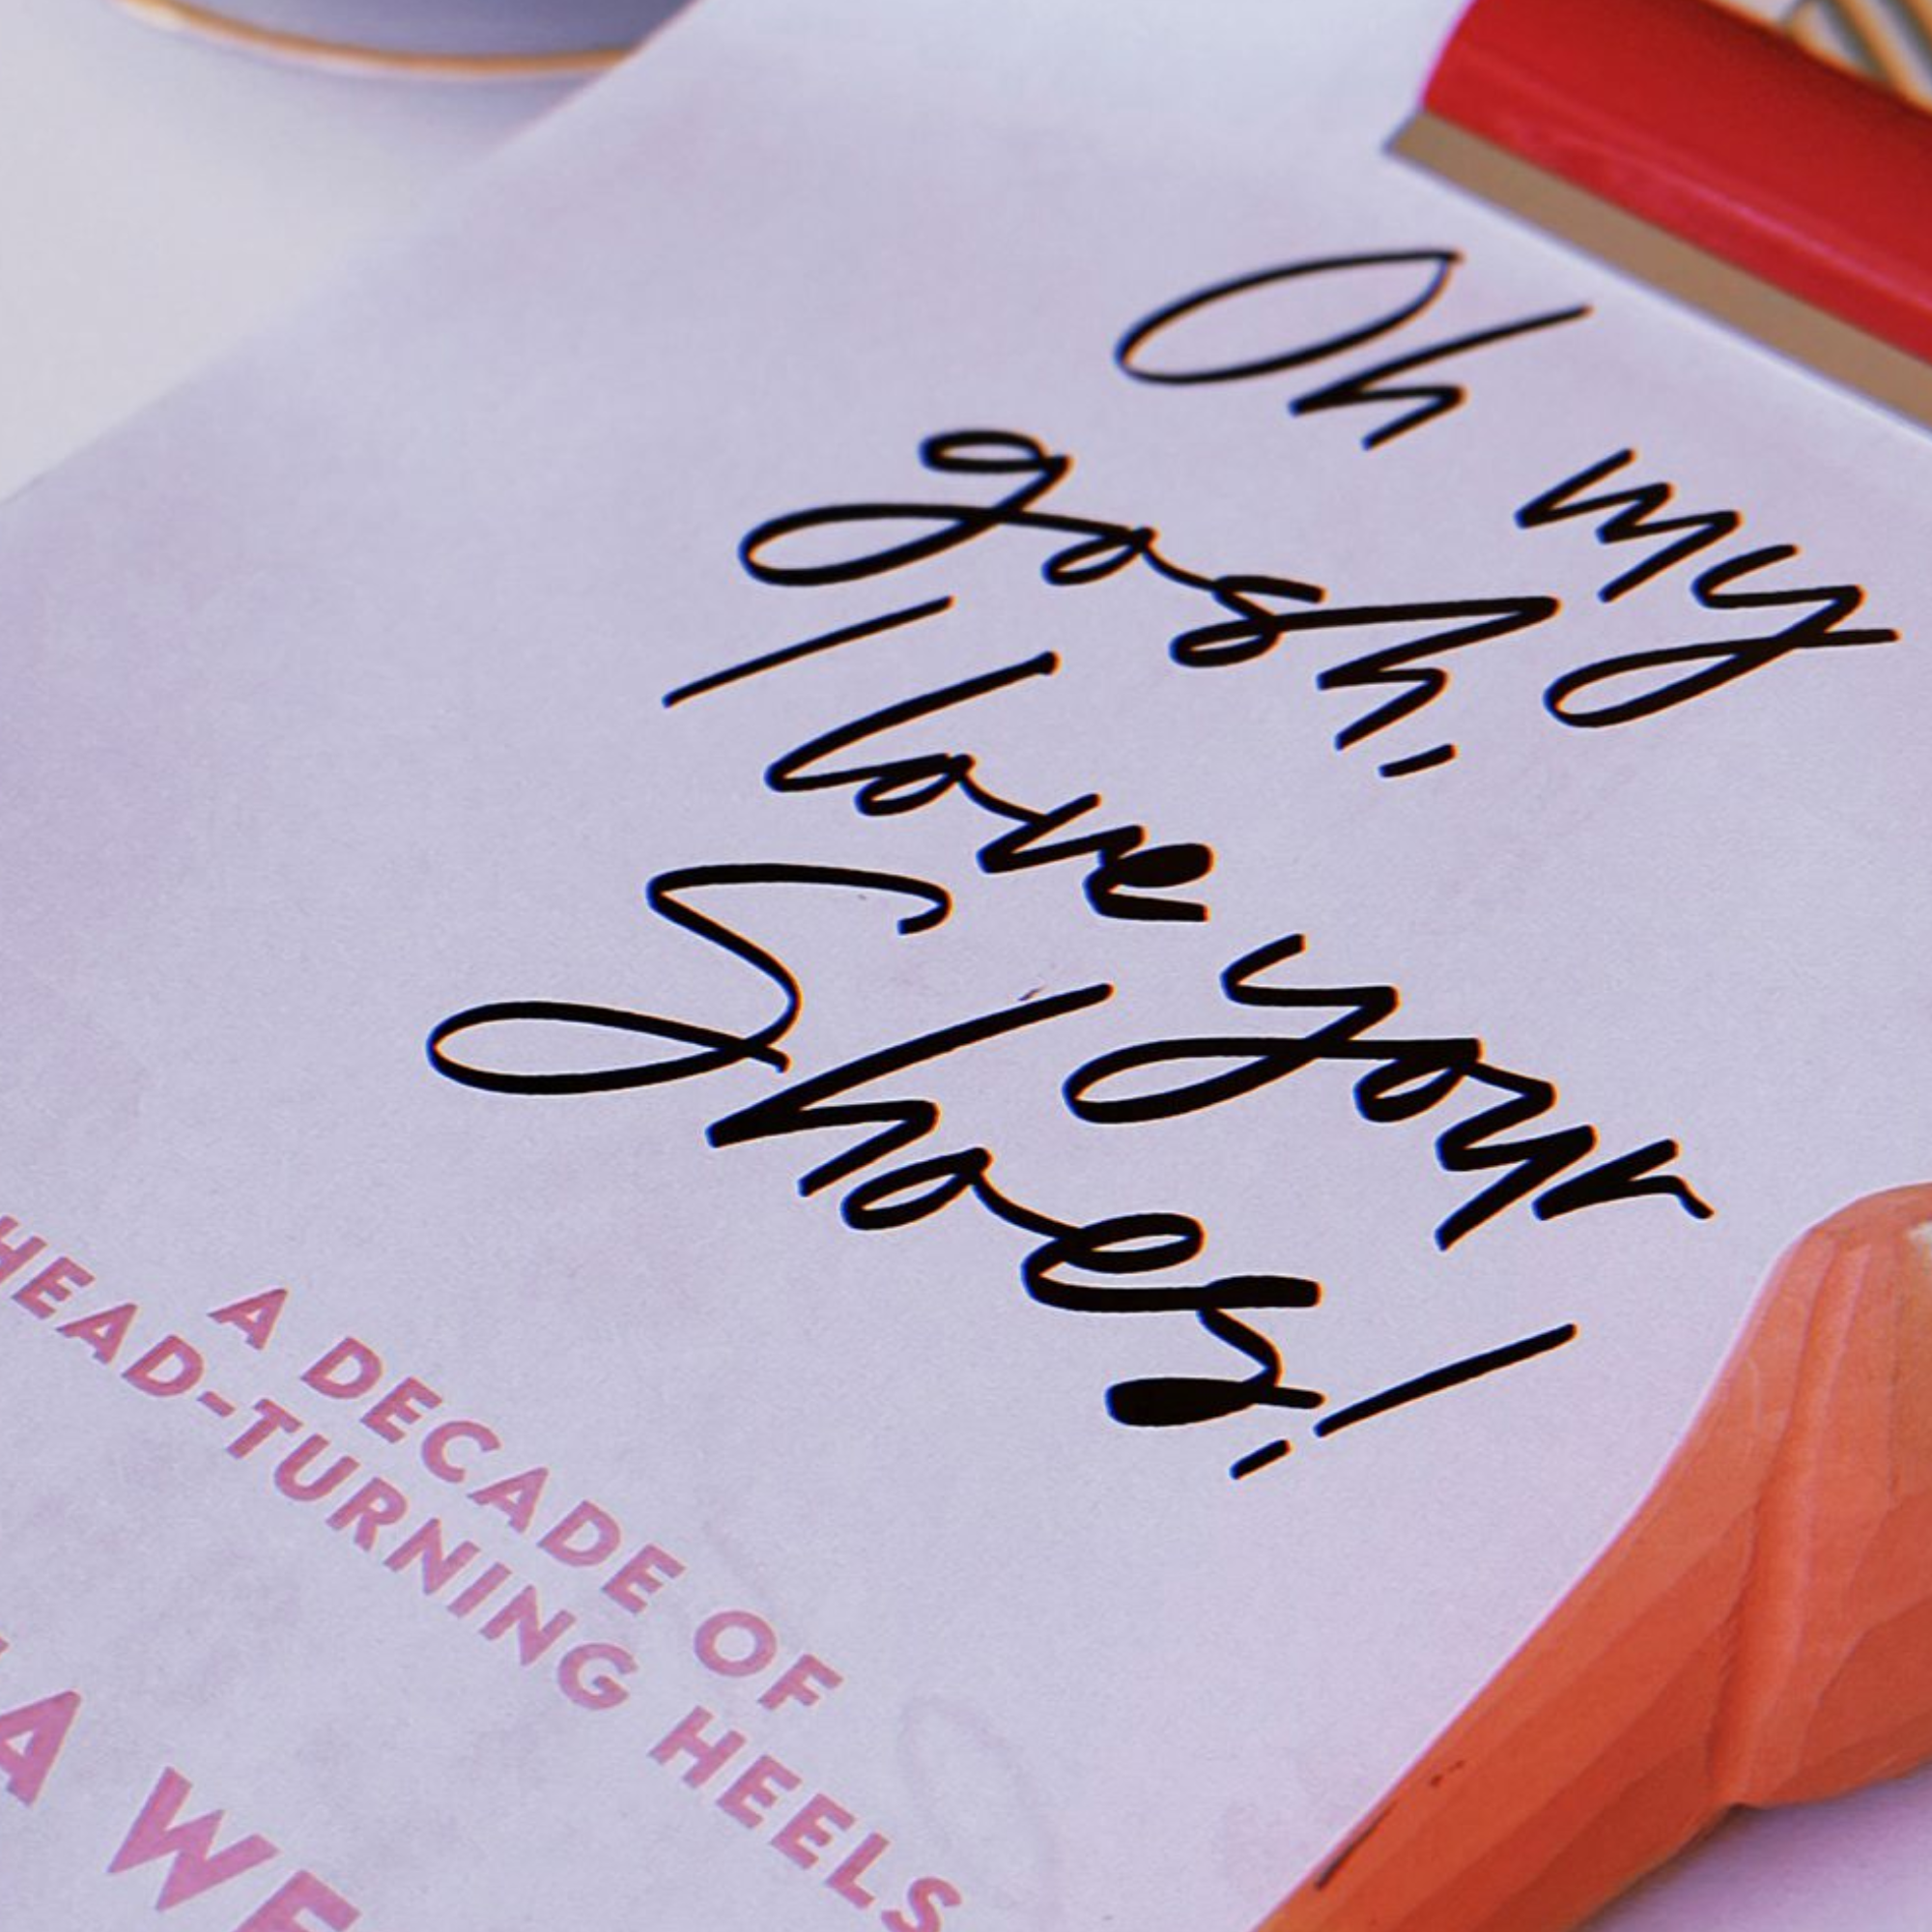 Oh my
gosh,
I love your
Shoes!
A DECADE OF
HEAD-TURNING HEELS